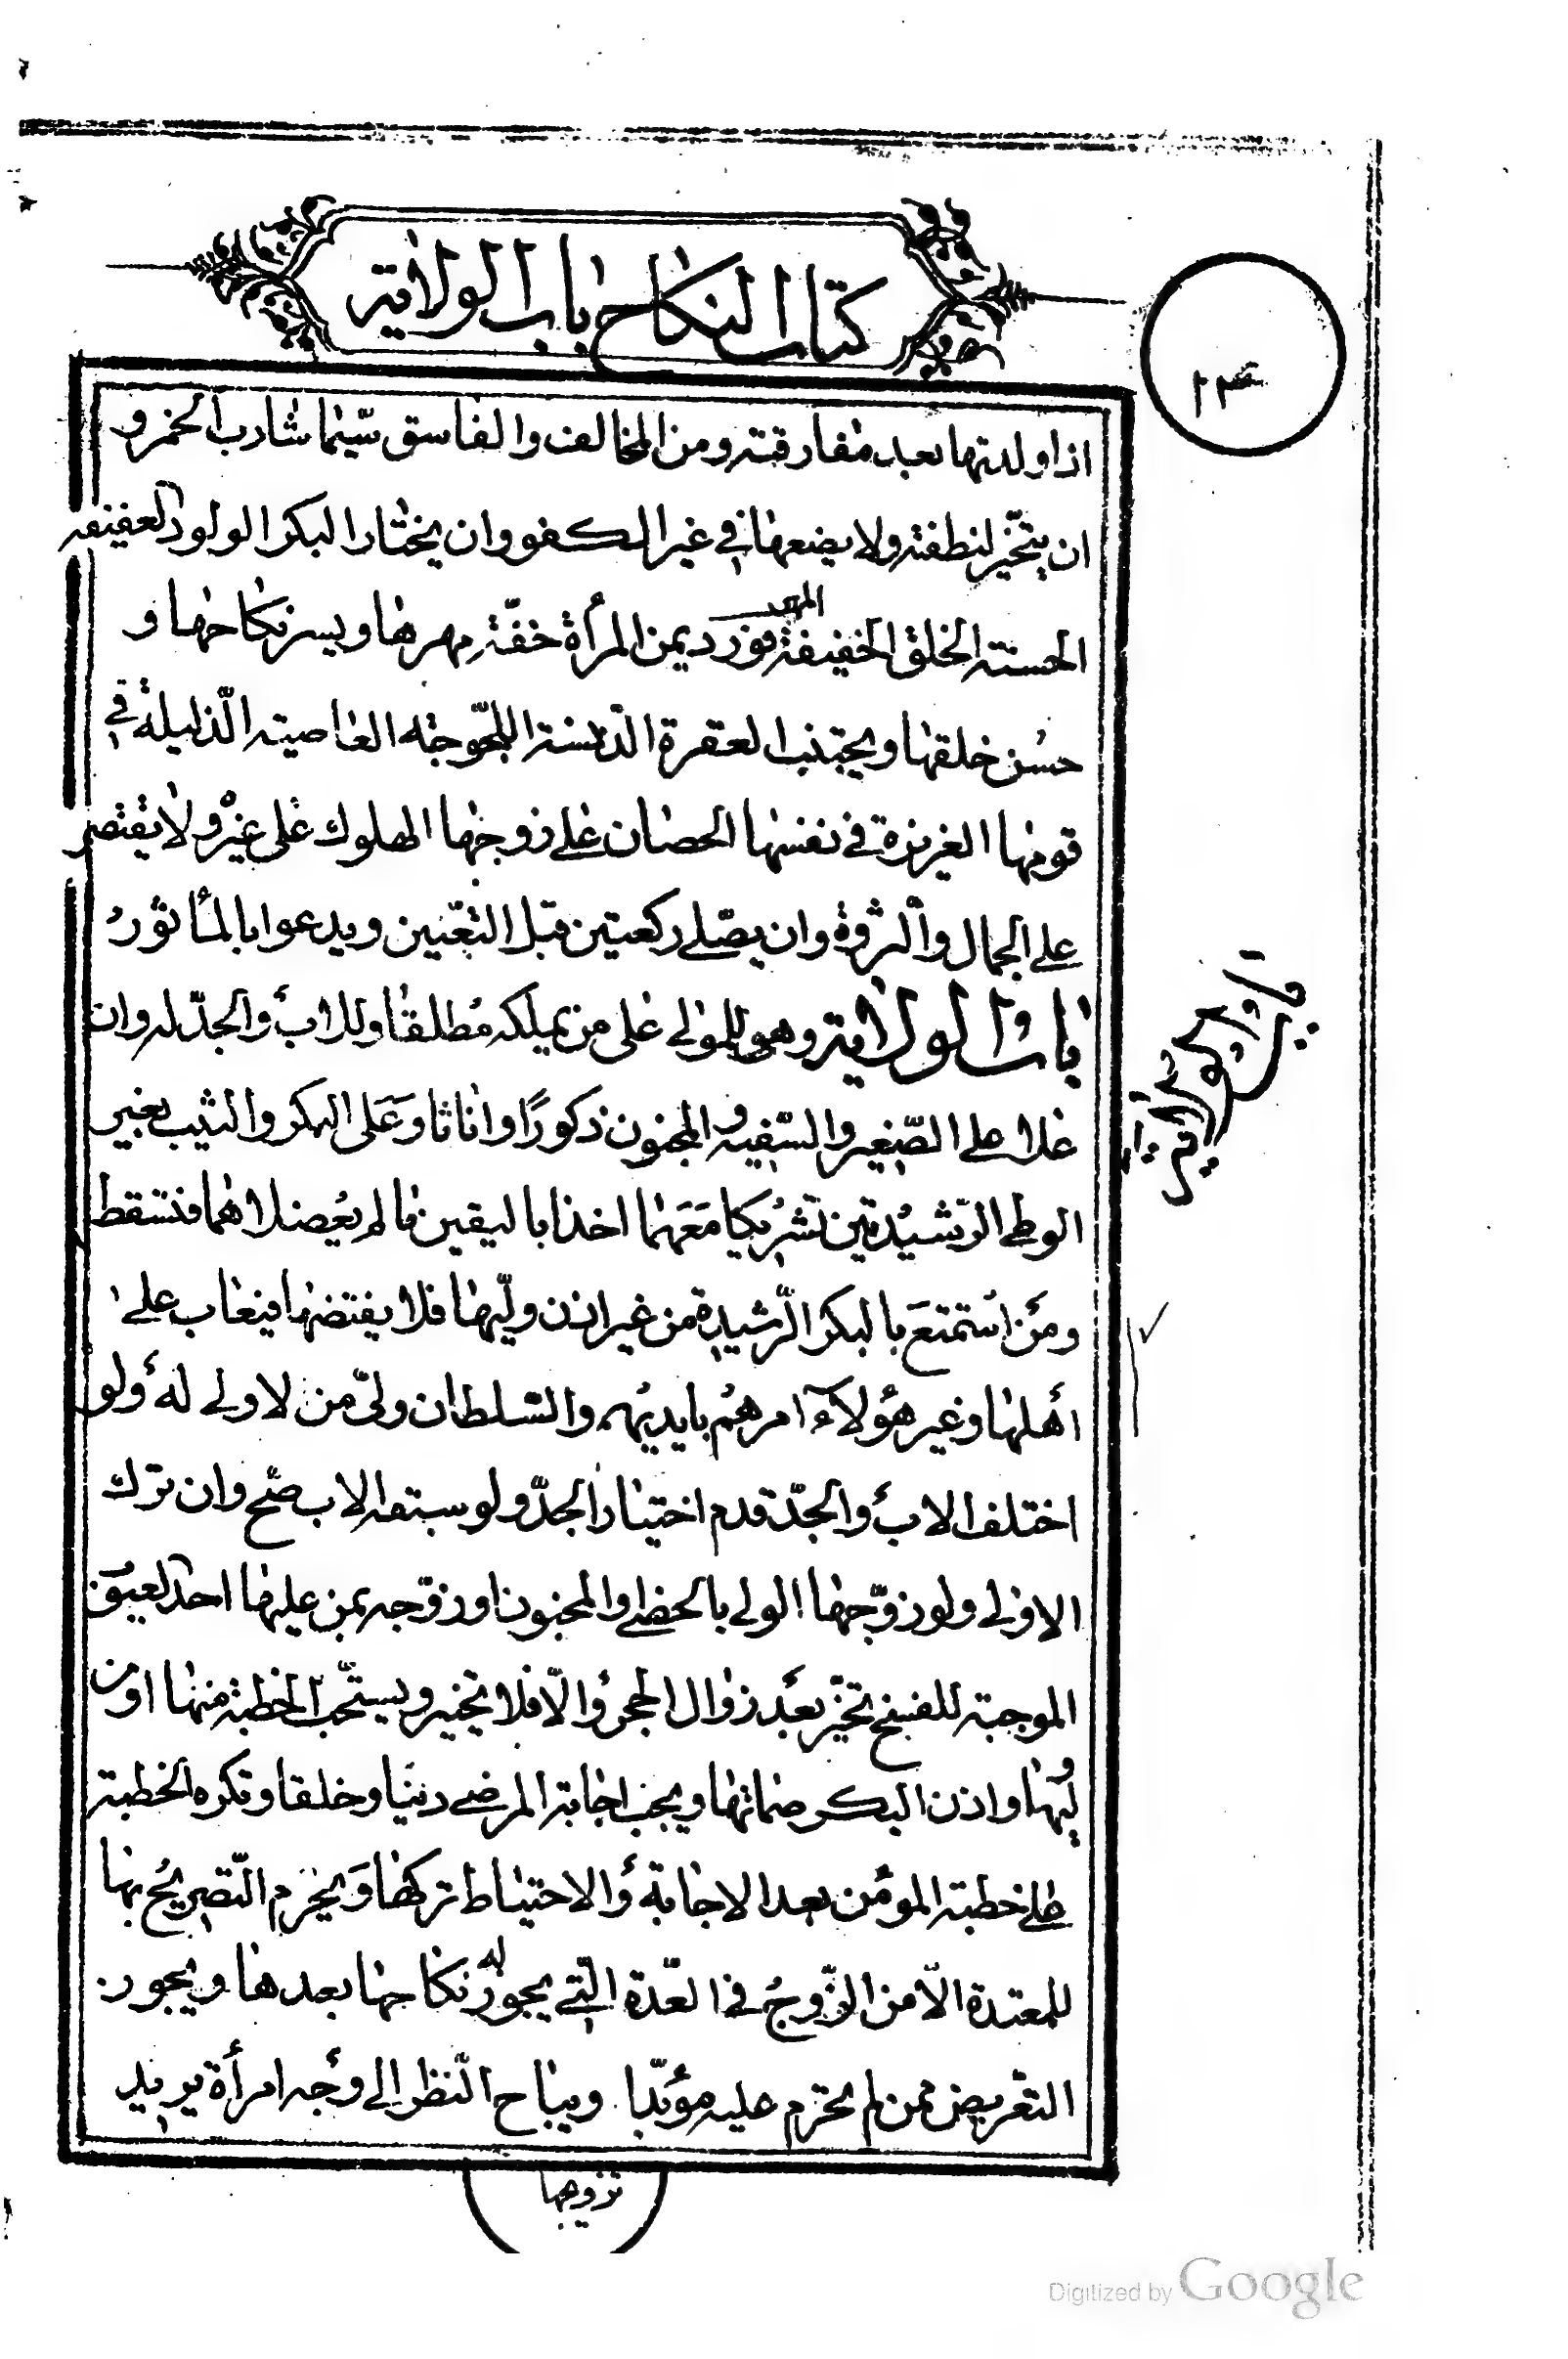 كتاب النكاح باب الولاية
اذا ولدتها بعد مفارقته ومن المخالف والفاسق سيّما شارب الخمر و
ان يتخيّر لنطفته ولا يضعها في غير الكفو وان يختار البكر الولود العفيفه
الحسنة الخلق الخفيفة المهر فورد يمن المرأة خفّة مهرها ويسر نكاحها و
حسن خلقها ويجتنب العقرة الدنسة اللجوجه العاصية الذليلة في
قومها العزيزة في نفسها الحصان على زوجها الهلوك على غيره ولا يقتصر
على الجمال والثروة وان يصلي ركعتين قبل التعيّن ويدعوا بالمأثور
باب الولاية وهو للمولى على من يملكه مطلقا وللاب والجدّ له وان
علا على الصّغير والسّفيه والمجنون ذكورًا واناثا وَعَلى البكر والثيب بغير
الوطي الرّشيدتين تشريكا مَعَهما اخذا باليقين ما لم يعضلاهما فتسقط
ومَن استمتعَ بالبكر الرّشيدة من غير اذن وليّها فلا يفتضها فيعاب على
أهلها وغير هؤلاء امرهم بايديهم والسّلطان وليّ من لا ولي له ولو
اختلف الاب والجدّ قدم اختيار الجدّ ولو سبقه الاب صحّ وان ترك
الاولى ولو زوّجها الولي بالخصي والمجنون او زوّجه بمن عليها احد العيوب
الموجبة للفسخ تخيّر بعد زوال الحجر والّا فلا تخيير ويستحبّ الخطبة منها او من
وليها واذن البكر صماتها ويجب اجابة المرضي دينا وخلقا وتكره الخطبة
على خطبة المؤمن بعد الاجابة والاحتياط تركها وَيحرم التّصريح بها
للمعتدة الّا من الزّوج في العدّة الّتي يجوز له نكاحها بعدها ويجوز
التعريض ممن لم تحرم عليه مؤبّدا ويباح النّظر الى وجه امرأة يريد
تزويجها
Digitized by Google